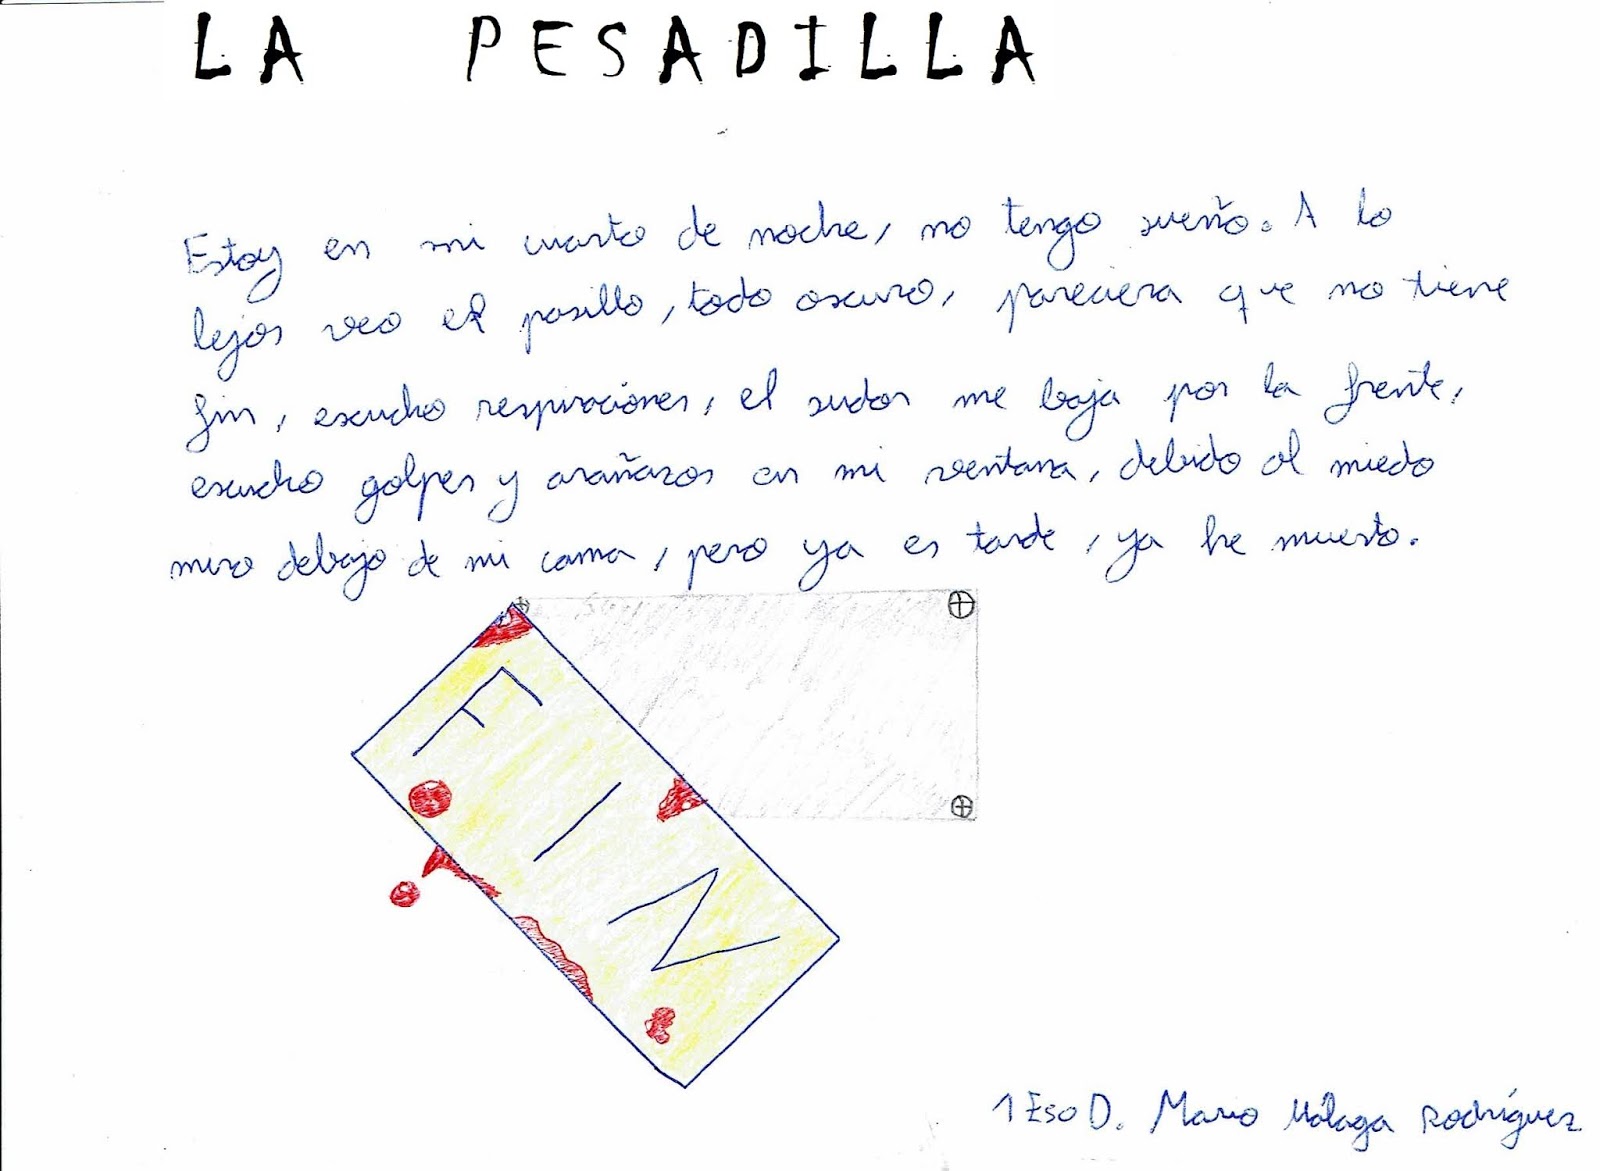 LA PESADILLA
Estoy en mi cuarto de noche, no tengo sueño. A lo
lejos veo el pasillo, todo oscuro, pareciera que no tiene
fin, escucho respiraciones, el sudor me baja por la frente,
escucho golpes y arañazos en mi ventana, debido al miedo
miro debajo de mi cama, pero ya es tarde, ya he muerto.
FIN
1 Eso D. Mario Málaga Rodríguez